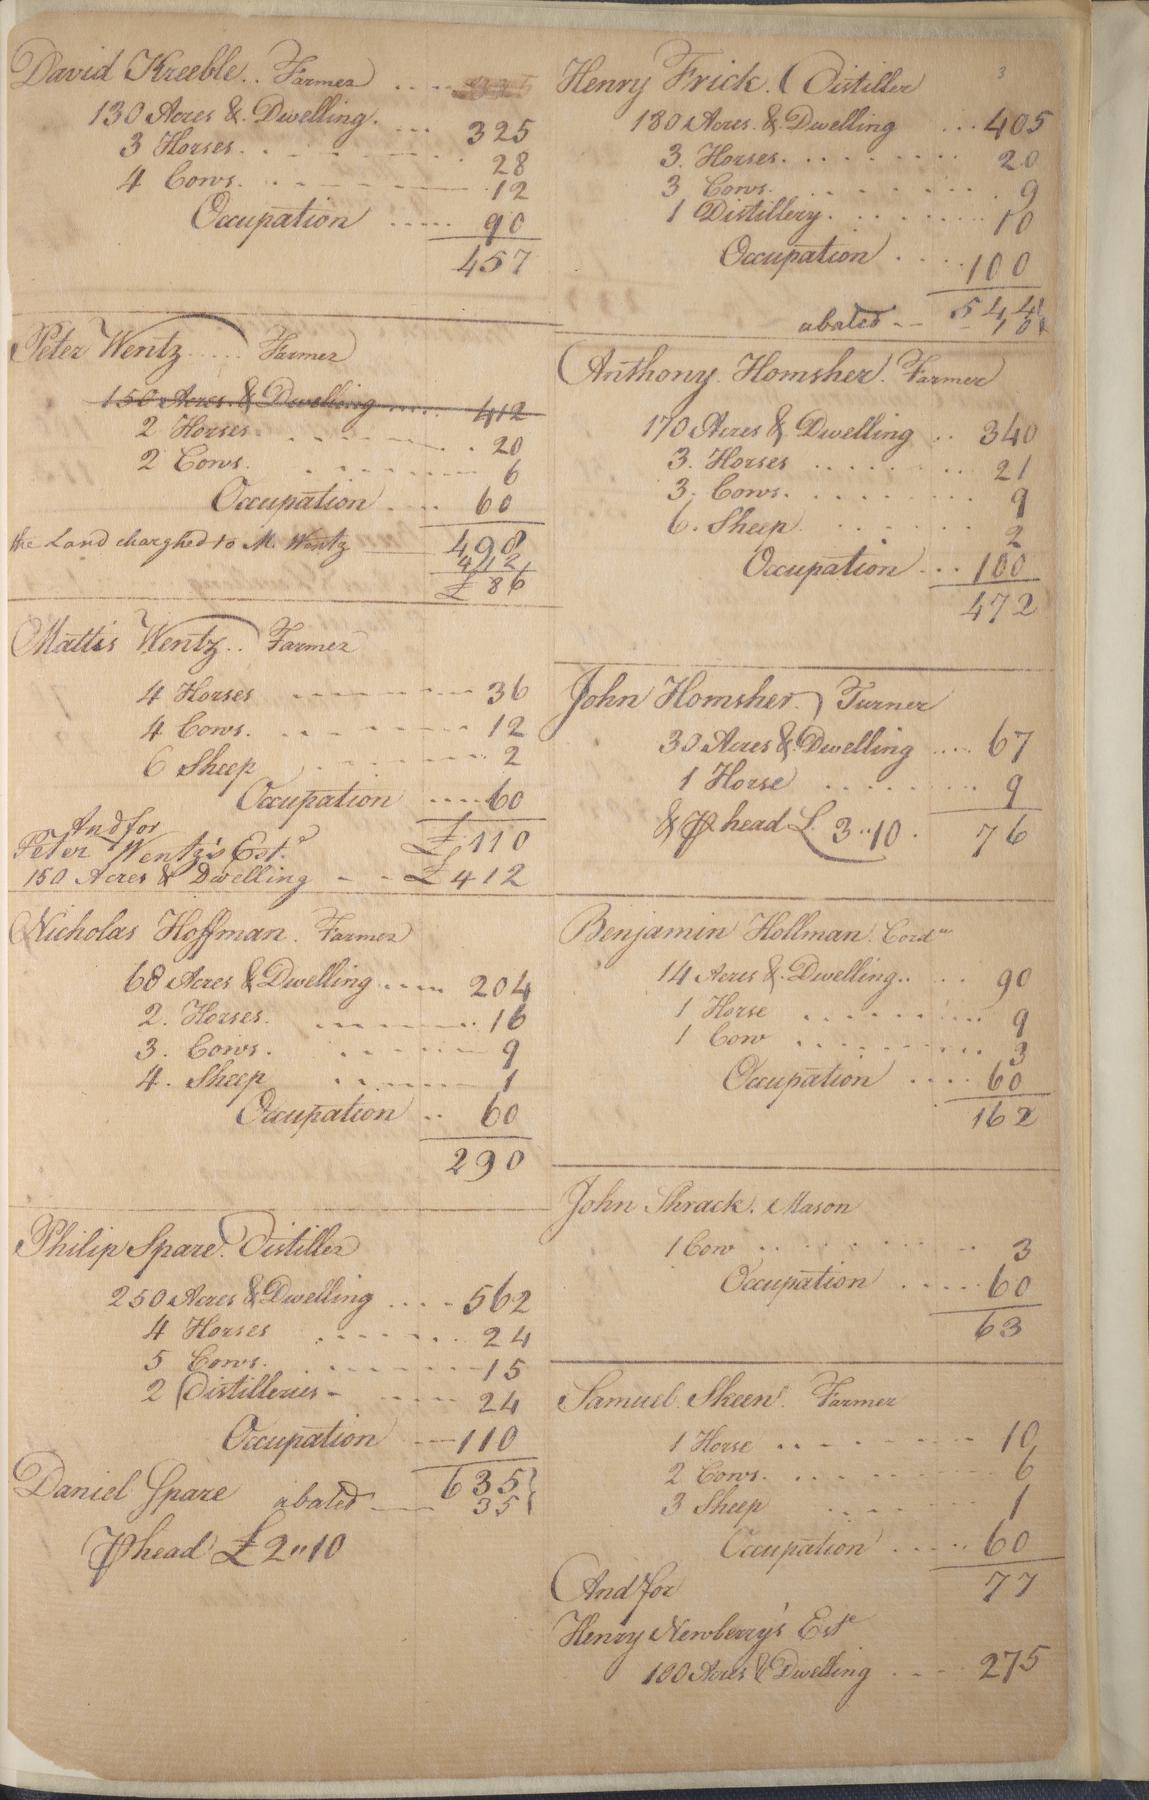 David Kreeble.. Farmer ....
130 Acres & Dwelling. .... 325
3 Horses. ........ 28
4 Cows. ........ 12
Occupation ..... 90
457
Peter Wentz ..... Farmer
150 Acres & Dwelling ..... 412
2 Horses. ........ 20
2 Cows. ........ 6
Occupation .... 60
the Land charghed to M. Wentz 498
412
£ 86
Mattis Wentz.. Farmer
4 Horses ........ 36
4 Cows. ........ 12
6 Sheep ........ 2
Occupation .... 60
And for £ 110
Peter Wentz's Est.e
150 Acres & Dwelling - - £ 412
Nicholas Hoffman. Farmer
68 Acres & Dwelling ..... 204
2. Horses. ........ 16
3. Cows. ........ 9
4. Sheep ........ 1
Occupation .. 60
290
Philip Spare. Distiller
250 Acres & Dwelling .... 562
4 Horses ........ 24
5 Cows. ........ 15
2 Distilleries - ..... 24
Occupation ... 110
635
Daniel Spare abated 35
℔ head £ 2"10
3
Henry Frick. Distiller
180 Acres. & Dwelling ... 405
3. Horses. ........ 20
3 Cows. ........ 9
1 Distillery. ........ 10
Occupation ..... 100
544
abated -- 10
Anthony. Homsher. Farmer
170 Acres & Dwelling .. 340
3. Horses ........ 21
3. Cows. ........ 9
6. Sheep ...... 2
Occupation ... 100
472
John Homsher. Turner
30 Acres & Dwelling .... 67
1 Horse ........ 9
& ℔ head £. 3"10. 76
Benjamin Hollman. Cordr
14 Acres & Dwelling.. .. 90
1 Horse ........ 9
1 Cow ........ 3
Occupation .... 60
162
John Shrack. Mason
1 Cow ........ 3
Occupation ..... 60
63
Samuel. Skeen. Farmer
1 Horse ........ 10
2 Cows. ........ 6
3 Sheep .... 1
Occupation ..... 60
And for 77
Henry Newberry's Este
100 Acres & Dwelling ... 275